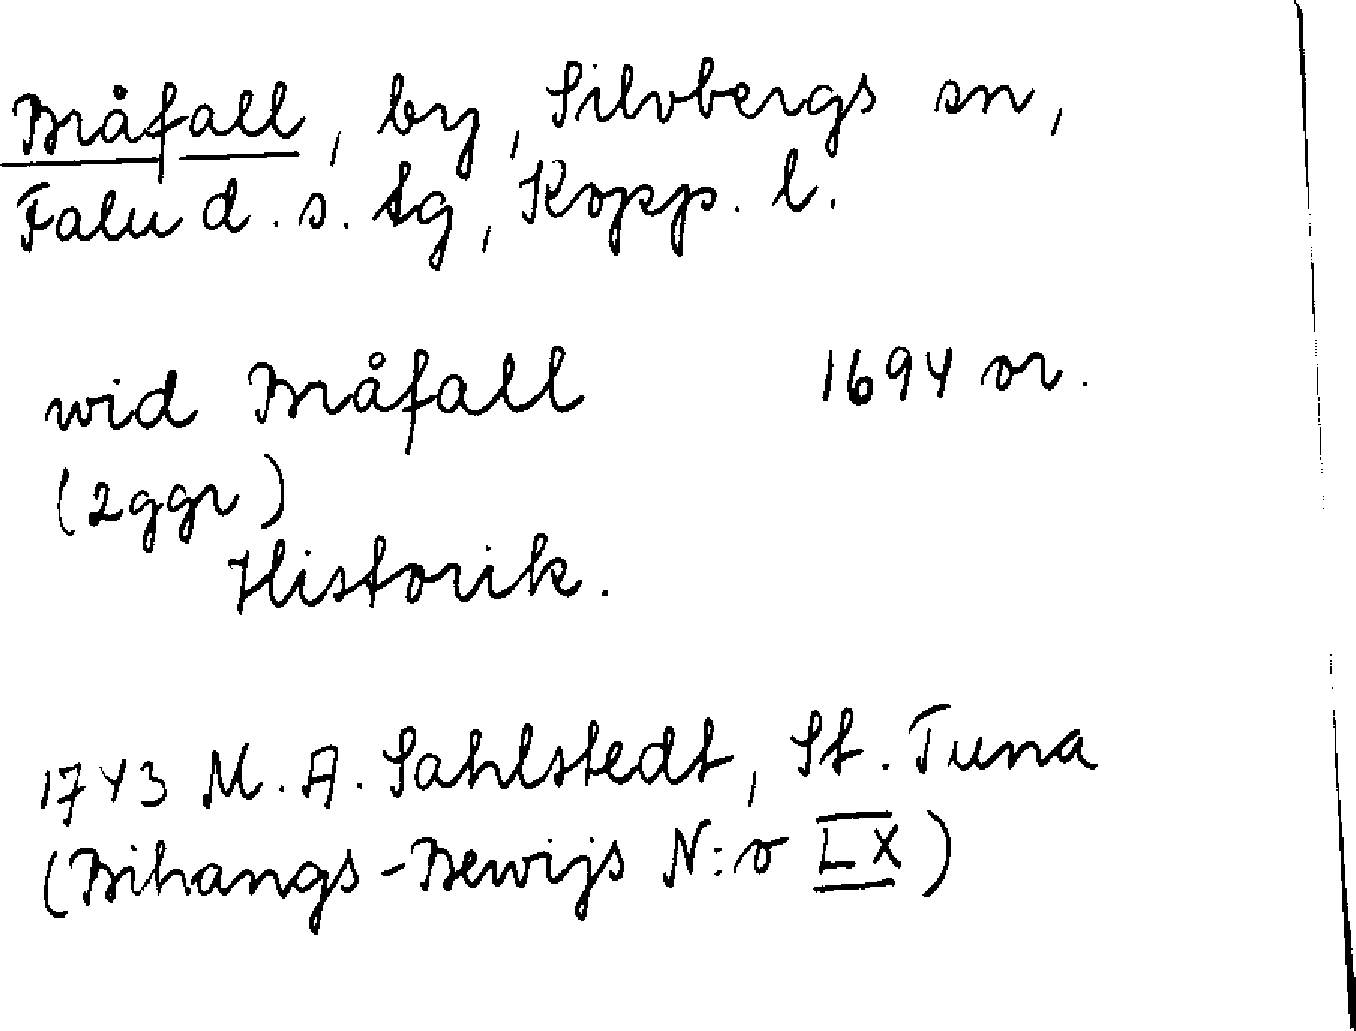 Bråfall, by, Silvbergs sn,
Falu d. s. tg, Kopp. l.
wid Bråfall 1694 or.
(2ggr)
Historik.
1743 M. A. Sahlstedt, St. Tuna
(Bihangs-Bewijs N:o LX)